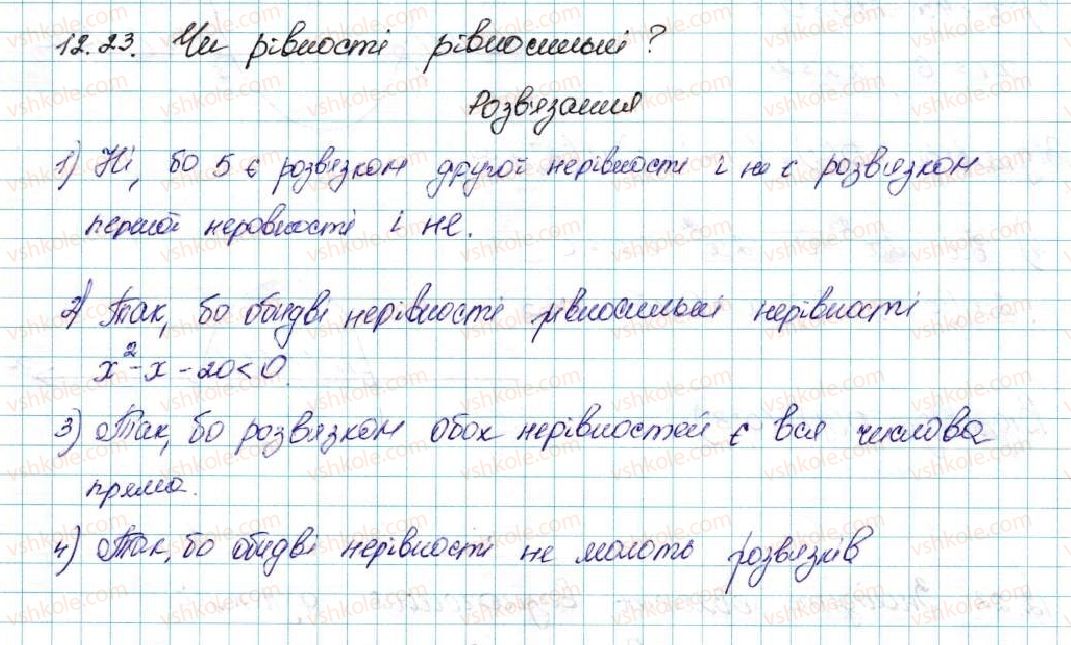 12.23. Чи рівності рівносильні?
Розв'язання
1) Ні, бо 5 є розв'язком другої нерівності і не є розв'язком
першої неровності і не.
2) Так, бо обидві нерівності рівносильні нерівності
x² - x - 20 < 0.
3) Так, бо розвязком обох нерівностей є вся числова
пряма.
4) Так, бо обидві нерівності не мають розвязків